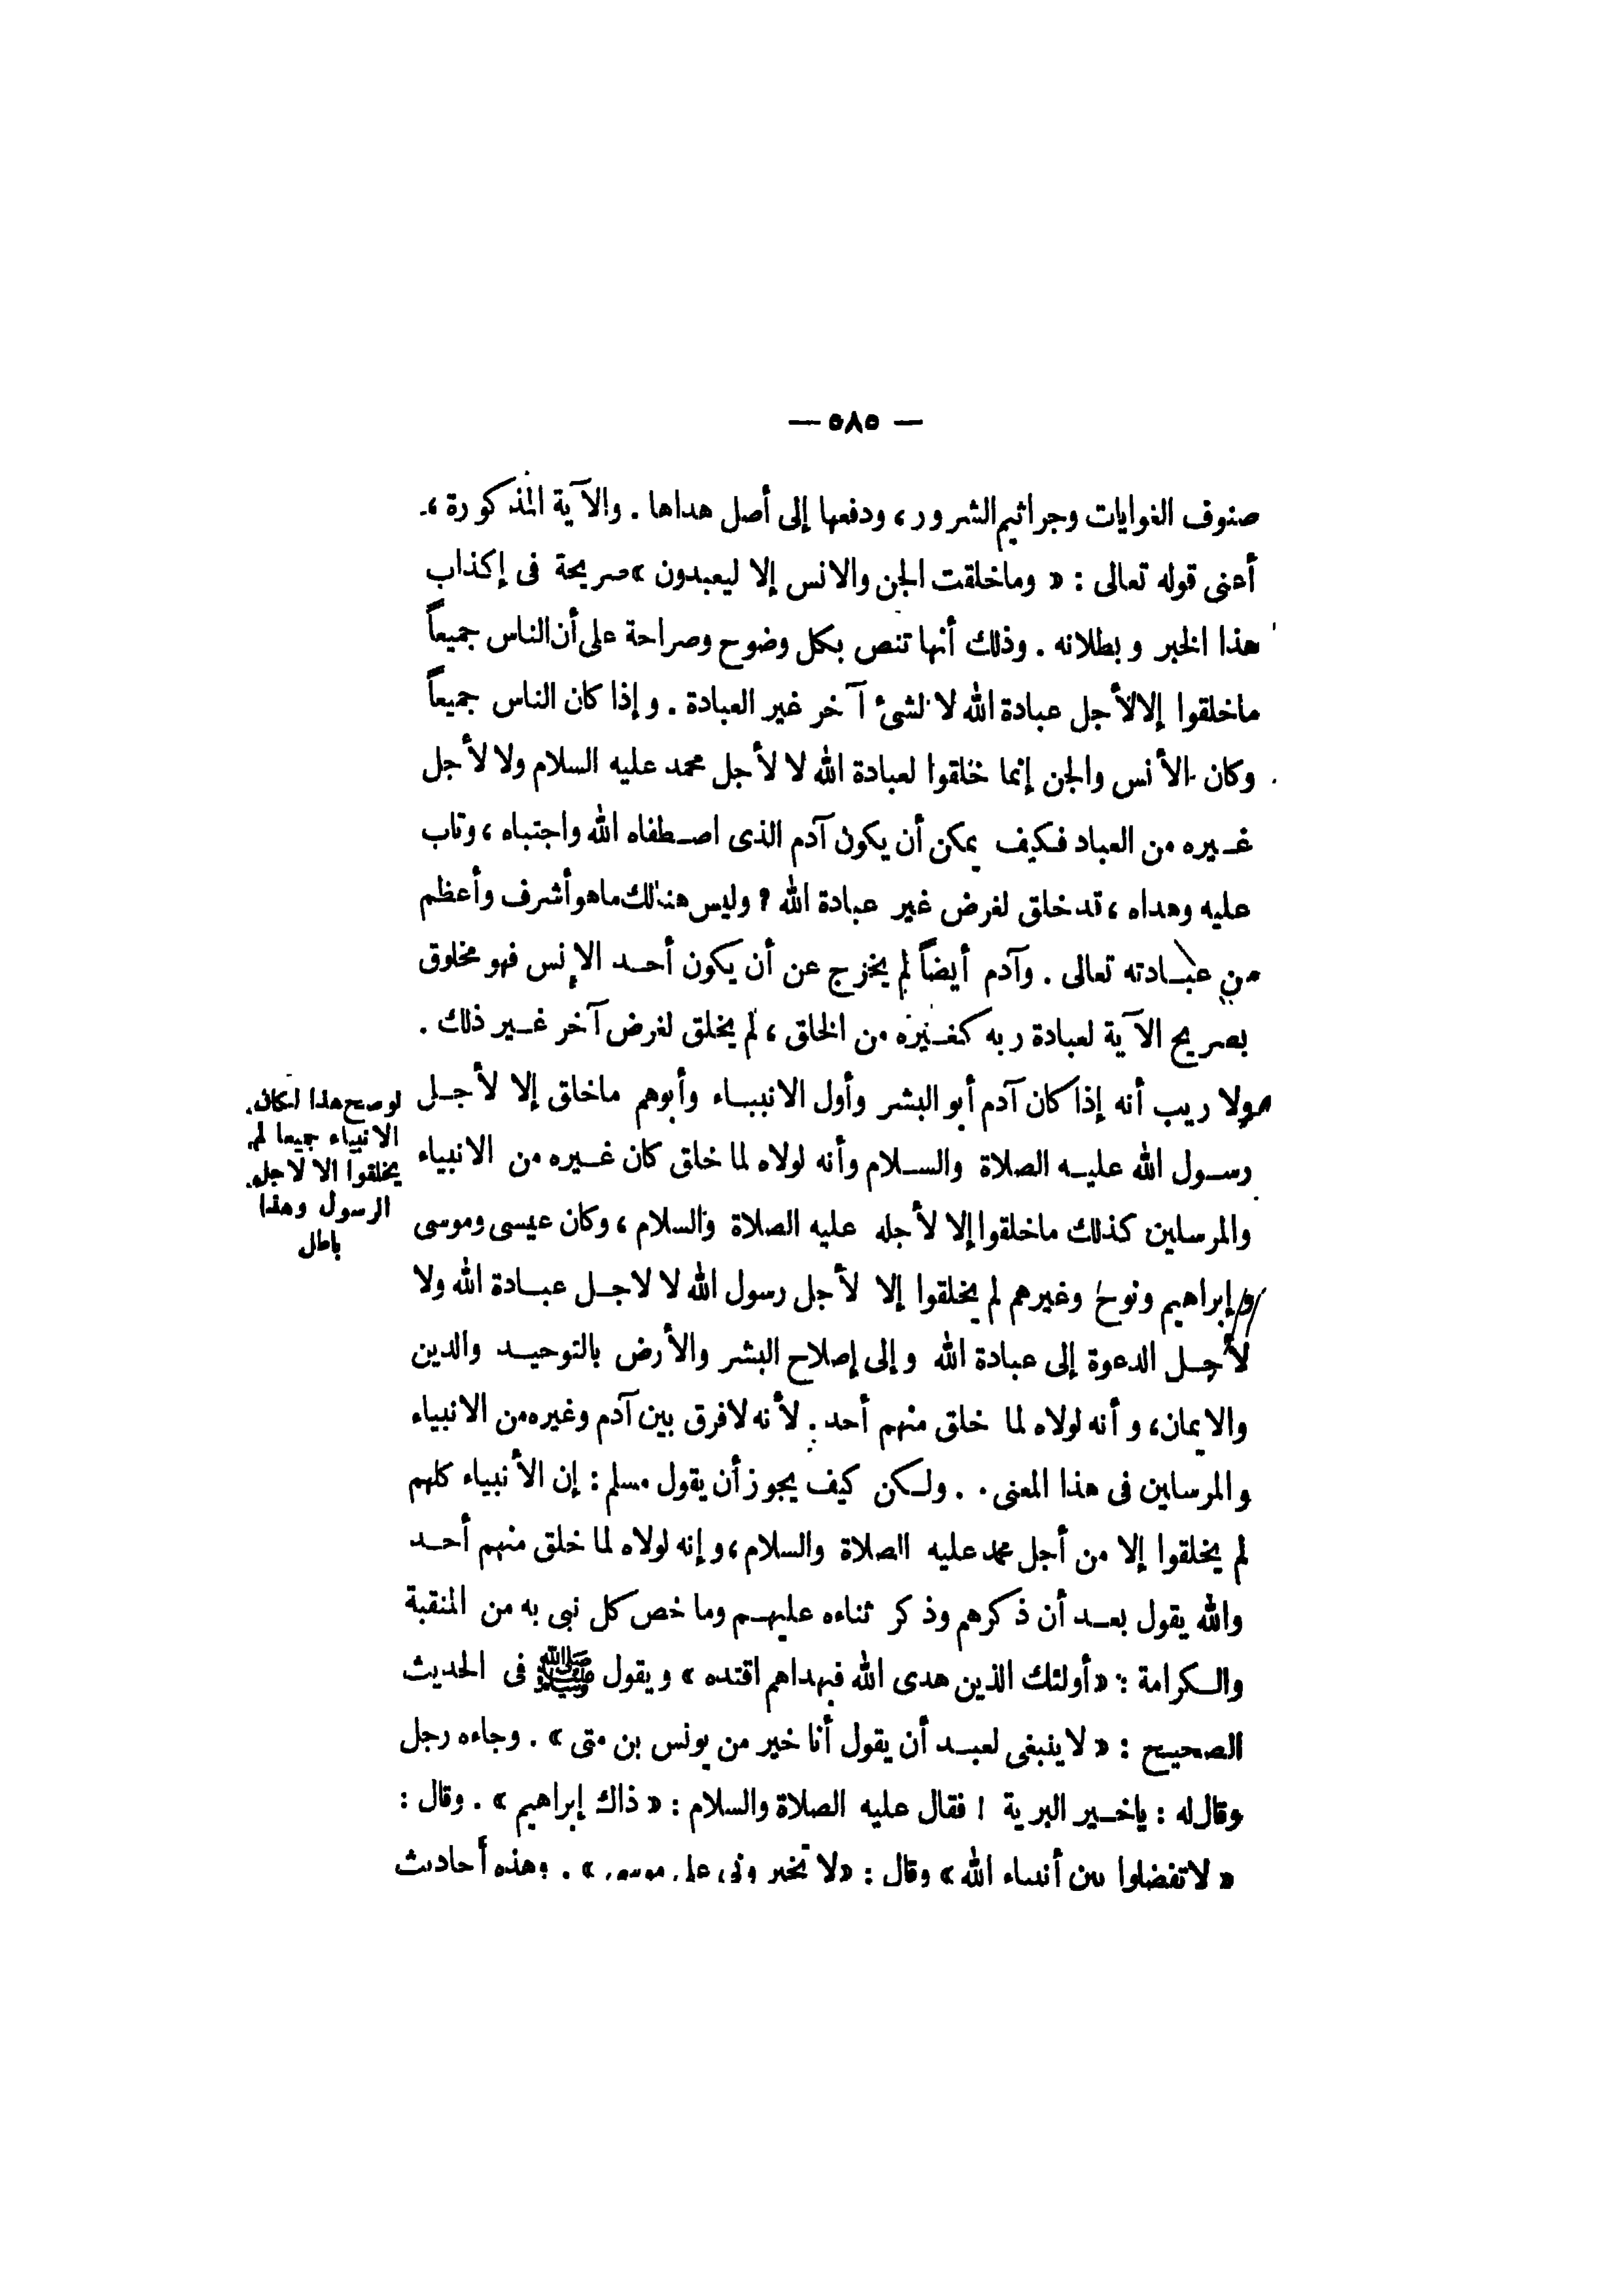 — ٥٨٥ —
صنوف الغوايات وجراثيم الشرور، ودفعها إلى أصل هداها . والآية المذكورة ،
أعنى قوله تعالى : « وماخلقت الجن والانس إلا ليعبدون » صريحة فى إكذاب
هذا الخبر وبطلانه . وذلك أنها تنص بكل وضوح وصراحة على أن الناس جميعاً
ماخلقوا إلا لأجل عبادة الله لا لشىء آخر غير العبادة . وإذا كان الناس جميعاً
وكان الأنس والجن إنما خلقوا لعبادة الله لا لأجل محمد عليه السلام ولا لأجل
غيره من العباد فكيف يمكن أن يكون آدم الذى اصطفاه الله واجتباه ، وتاب
عليه وهداه ، قد خلق لغرض غير عبادة الله ؟ وليس هنالك ماهو أشرف وأعظم
من عبادته تعالى . وآدم أيضاً لم يخرج عن أن يكون أحد الإنس فهو مخلوق
بصريح الآية لعبادة ربه كغيره من الخلق ، لم يخلق لغرض آخر غير ذلك .
ولا ريب أنه إذا كان آدم أبو البشر وأول الانبياء وأبوهم ماخلق إلا لأجل
رسول الله عليه الصلاة والسلام وأنه لولاه لما خلق كان غيره من الانبياء
والمرسلين كذلك ماخلقوا إلا لأجله عليه الصلاة والسلام ، وكان عيسى وموسى
وإبراهيم ونوح وغيرهم لم يخلقوا إلا لأجل رسول الله لا لاجل عبادة الله ولا
لأجل الدعوة إلى عبادة الله وإلى إصلاح البشر والأرض بالتوحيد والدين
والايمان، وأنه لولاه لما خلق منهم أحد . لأنه لافرق بين آدم وغيره من الانبياء
والمرسلين فى هذا المعنى . . ولكن كيف يجوز أن يقول مسلم : إن الأنبياء كلهم
لم يخلقوا إلا من أجل محمد عليه الصلاة والسلام ، وإنه لولاه لما خلق منهم أحد
والله يقول بعد أن ذكرهم وذكر ثناءه عليهم وما خص كل نبى به من المنقبة
والكرامة : « أولئك الذين هدى الله فبهداهم اقتده » ويقول ﷺ فى الحديث
الصحيح : « لا ينبغى لعبد أن يقول أنا خير من يونس بن متى » . وجاءه رجل
وقال له : ياخير البرية ! فقال عليه الصلاة والسلام : « ذاك إبراهيم » . وقال :
« لاتفضلوا بين أنبياء الله » وقال : « لا تخيرونى على موسى » . وهذه أحاديث
لو صح هذا لكان
الانبياء جميعا لم
يخلقوا الا لاجل
الرسول وهذا
باطل